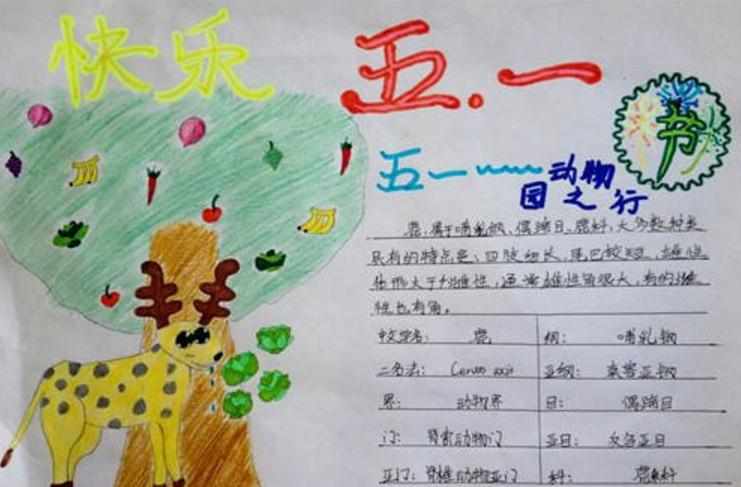 快乐 五.一
节
五一~~~动物
园之行
鹿,属于哺乳纲、偶蹄目、鹿科,大多数种类
具有的特点是,四肢细长、尾巴较短,雄性
体形大于雌性,通常雄性有角,有的雌
性也有角。
中文学名: 鹿 纲: 哺乳纲
二名法: Cervus axis 亚纲: 真兽亚纲
界: 动物界 目: 偶蹄目
门: 脊索动物门 亚目: 反刍亚目
亚门: 脊椎动物亚门 科: 鹿科